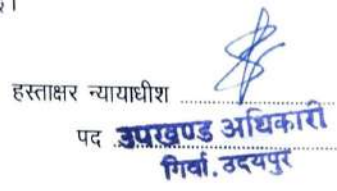 हस्ताक्षर न्यायाधीश ....................
पद उपखण्ड अधिकारी
गिर्वा. उदयपुर